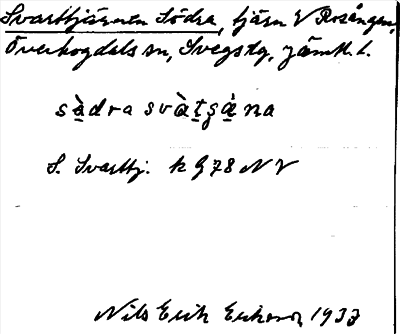 Svarttjärnen Södra, tjärn V Rosången,
Överhogdals sn, Svegs tg, Jämtl. l.
sàdra svàtşàna
S. Svarttj. k G 78 NV
Nils Erik Erikson, 1933